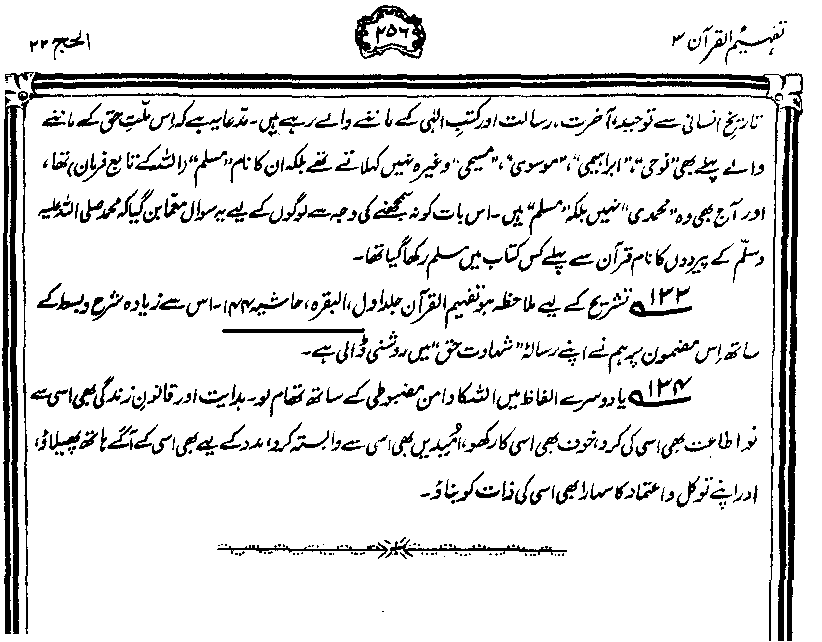 تفہیم القرآن ۳
۲۵۶
الحج ۲۲
تاریخِ انسانی سے توحید، آخرت، رسالت اور کتبِ الٰہی کے ماننے والے رہے ہیں۔ مدّعا یہ ہے کہ اس ملّتِ حق کے ماننے
والے پہلے بھی ”نوحی“، ”ابراہیمی“، ”موسوی“، ”مسیحی“ وغیرہ نہیں کہلاتے تھے بلکہ ان کا نام ”مسلم“ (اللہ کے تابع فرمان) تھا،
اور آج بھی وہ ”محمدی“ نہیں بلکہ ”مسلم“ ہیں۔ اس بات کو نہ سمجھنے کی وجہ سے لوگوں کے لیے یہ سوال معمّا بن گیا کہ محمد صلی اللہ علیہ
وسلّم کے پیرووں کا نام قرآن سے پہلے کس کتاب میں مسلم رکھا گیا تھا۔
۱۳۳ تشریح کے لیے ملاحظہ ہو تفہیم القرآن جلد اول، البقرہ، حاشیہ ۱۴۴۔ اس سے زیادہ شرح وبسط کے
ساتھ اِس مضمون پر ہم نے اپنے رسالۂ ”شہادتِ حق“ میں روشنی ڈالی ہے۔
۱۳۴ یا دوسرے الفاظ میں اللہ کا دامن مضبوطی کے ساتھ تھام لو۔ ہدایت اور قانونِ زندگی بھی اسی سے
لو، اطاعت بھی اسی کی کرو، خوف بھی اسی کا رکھو، اُمیدیں بھی اسی سے وابستہ کرو، مدد کے لیے بھی اسی کے آگے ہاتھ پھیلاؤ،
اور اپنے توکل و اعتماد کا سہارا بھی اسی کی ذات کو بناؤ۔